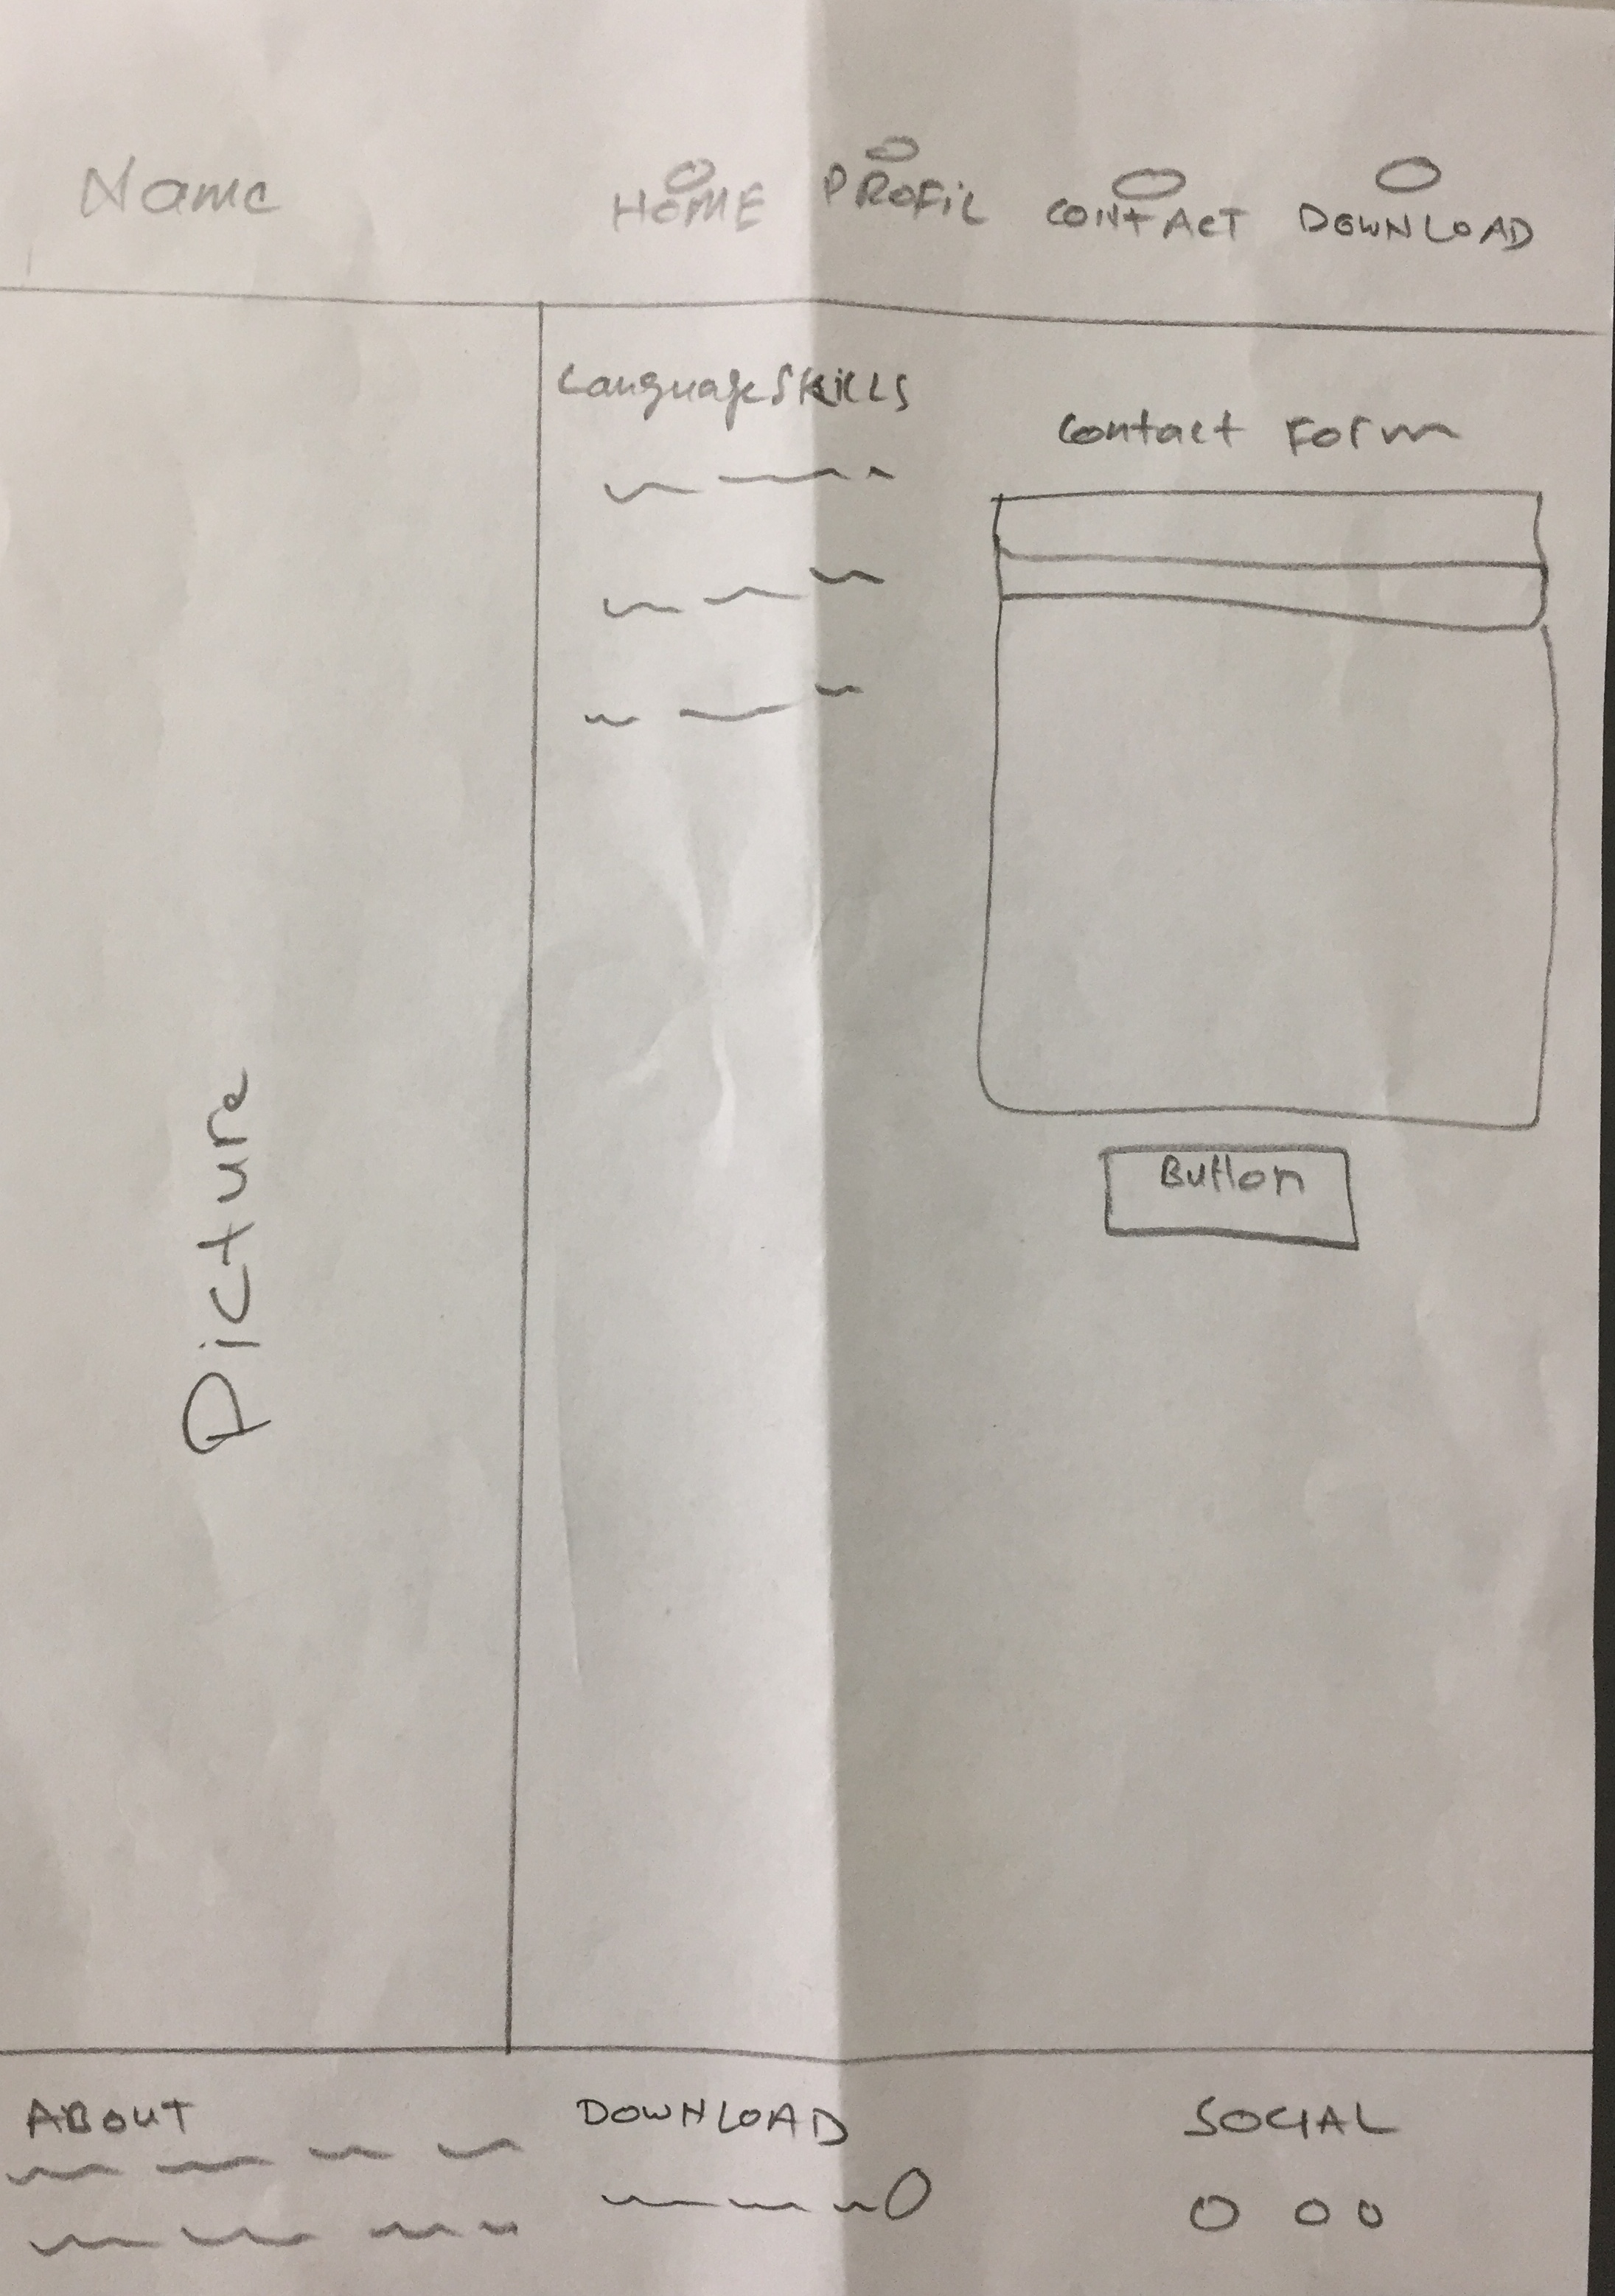 Name
HOME PROFIL CONTACT DOWNLOAD
Language Skills
Contact Form
Button
Picture
ABOUT DOWNLOAD SOCIAL